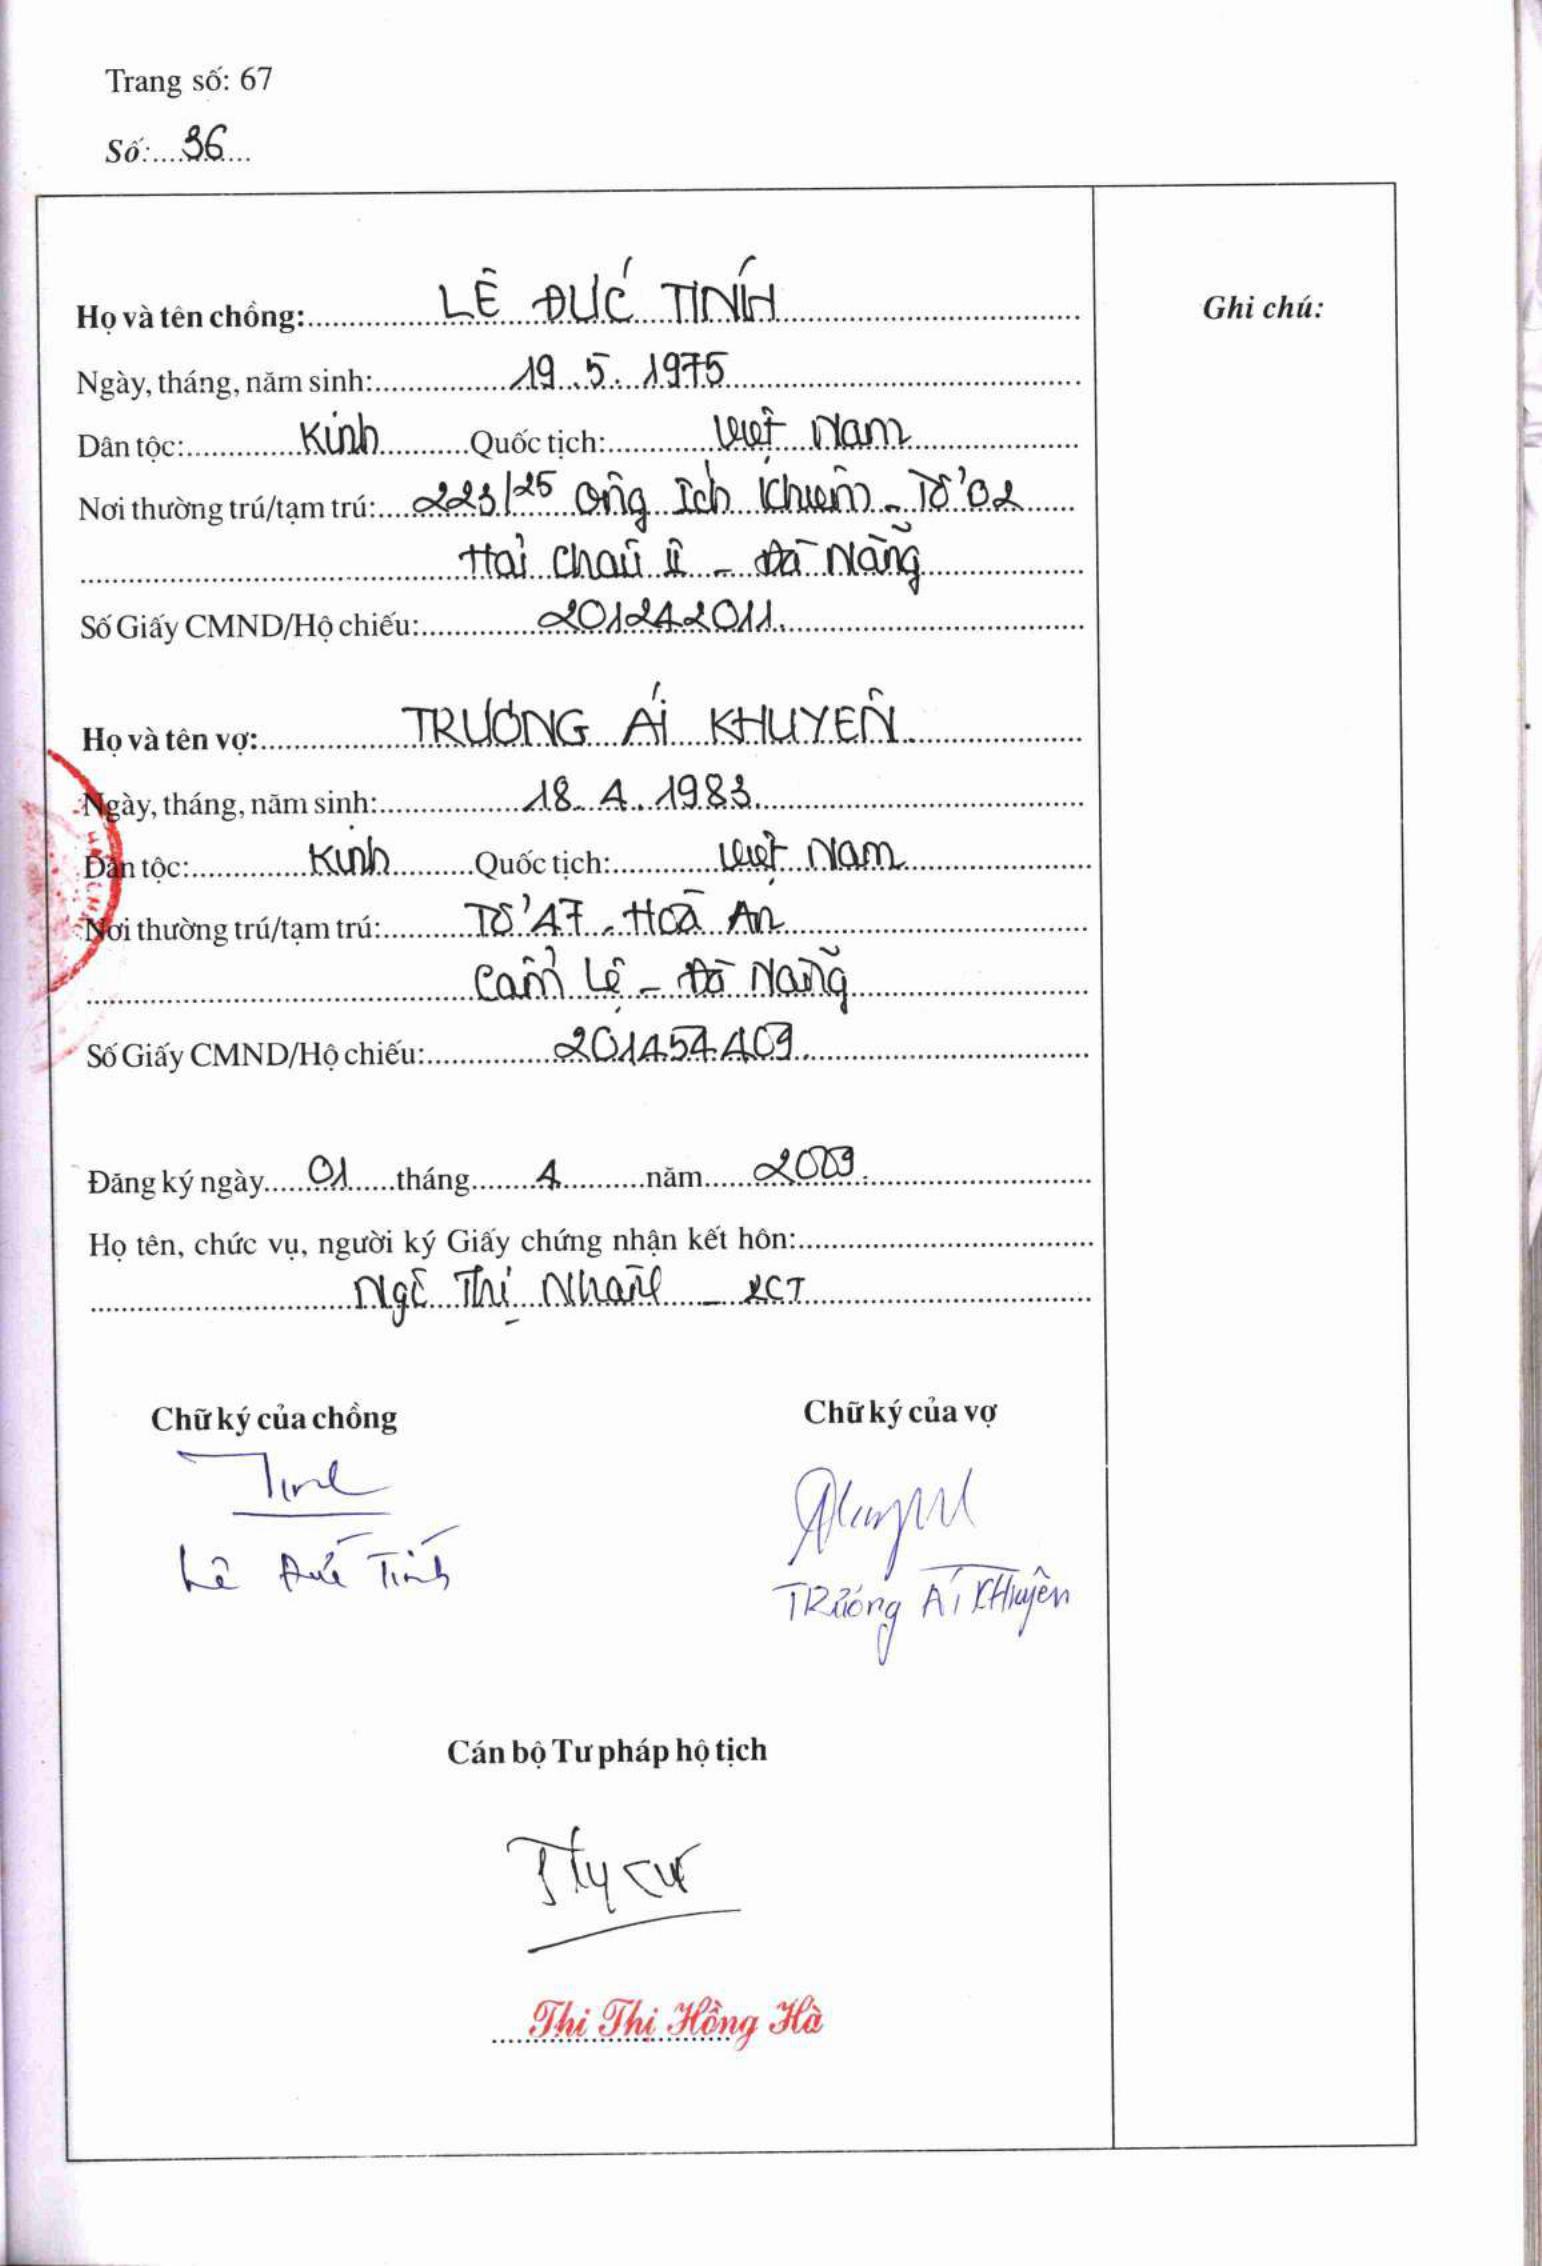 Trang số: 67
Số: 36
Họ và tên chồng: LÊ ĐỨC TÍNH
Ghi chú:
Ngày, tháng, năm sinh: 19.5.1975
Dân tộc: Kinh Quốc tịch: Việt Nam
Nơi thường trú/tạm trú: 223/25 Ông Ích Khiêm - Tổ 02
Hải Châu II - Đà Nẵng
Số Giấy CMND/Hộ chiếu: 201242011.
Họ và tên vợ: TRƯƠNG ÁI KHUYÊN
Ngày, tháng, năm sinh: 18.4.1983.
Dân tộc: Kinh Quốc tịch: Việt Nam
Nơi thường trú/tạm trú: Tổ 47 - Hoà An
Cẩm Lệ - Đà Nẵng
Số Giấy CMND/Hộ chiếu: 201454403.
Đăng ký ngày 01 tháng 4 năm 2009.
Họ tên, chức vụ, người ký Giấy chứng nhận kết hôn:
Ngô Thị Nhanh - PCT
Chữ ký của chồng
Chữ ký của vợ
Lê Đức Tính
Trương Ái Khuyên
Cán bộ Tư pháp hộ tịch
Thi Thị Hồng Hà